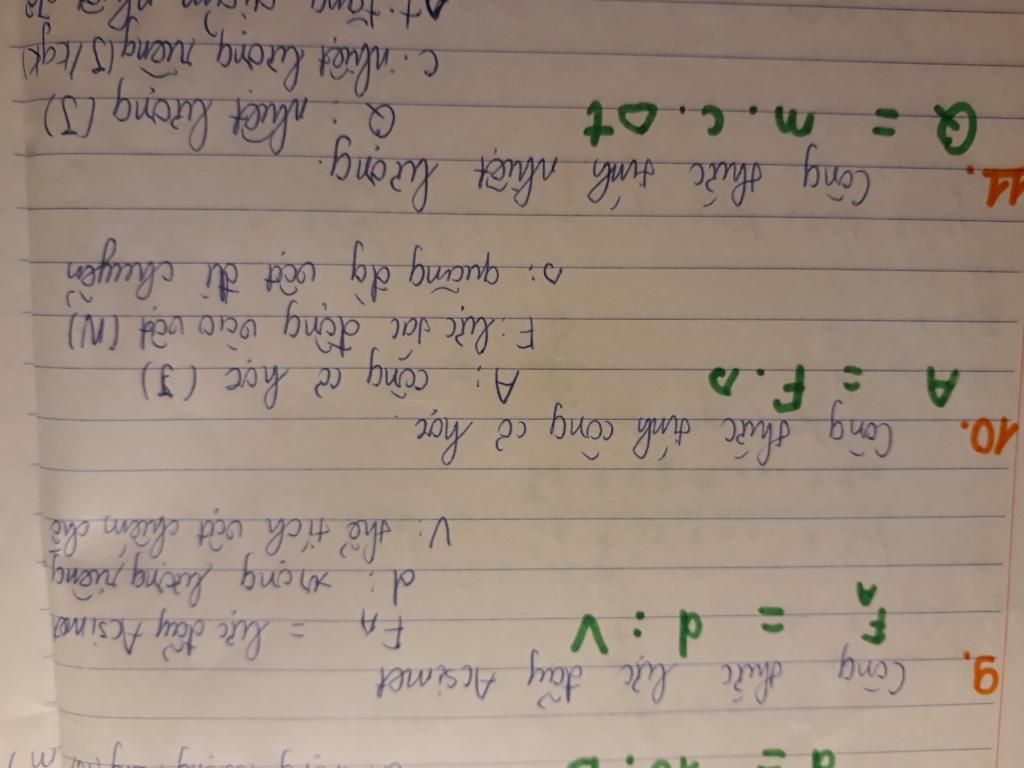 d = 10. D
9. Công thức lực đẩy Acsimet
F_A = d : V F_A = lực đẩy Acsimet
d: trọng lượng riêng
V: thể tích vật chiếm chỗ
10. Công thức tính công cơ học.
A = F.s A: công cơ học (J)
F: lực tác động vào vật (N)
s: quãng đg vật đi chuyển
11. Công thức tính nhiệt lượng.
Q = m.c.Δt Q: nhiệt lượng (J)
C: nhiệt lượng riêng (J/kgk)
Δt: tăng giảm nhiệt độ